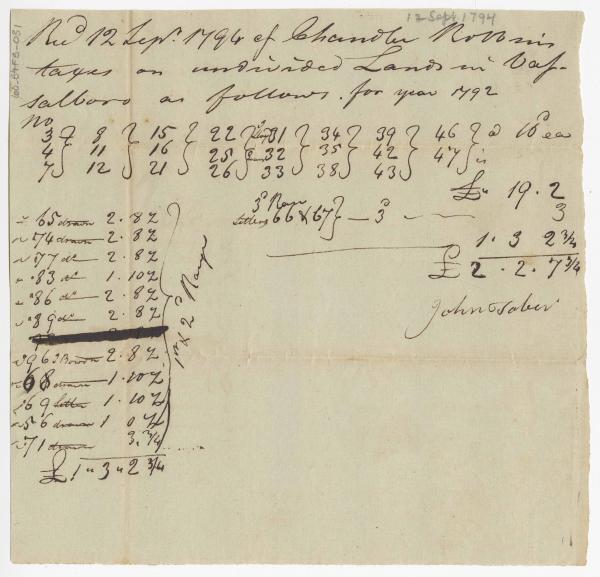 12 Sept 1794
Recd 12 Sepr. 1794 of Chandler Robbins
taxes on undivided Lands in Vas-
salboro as follows. for year 1792
No
3 } 8 } 15 } 22 } 31 } 34 } 39 } 46 } @ 10d ea
4 } 11 } 16 } 25 } 32 } 35 } 42 } 47 } is
7 } 12 } 21 } 26 } 33 } 38 } 43 }
£" 19.2
3d Rang
Letters 66 & 67 } — 3d — 3
1.3 2 3/4
£ 2.2.7 3/4
John Taber
65 drawn 2.8 1/2
74 drawn 2.8 1/2
77 do 2.8 1/2
83 do 1.10 1/2
86 do 2.8 1/2
89 do 2.8 1/2
96 2.8 1/2
68 drawn 1.10 1/2
69 letter 1.10 1/2
56 drawn 1 0 1/2
71 drawn 3 3/4
£ 1"3"2 3/4
1st & 2d Range